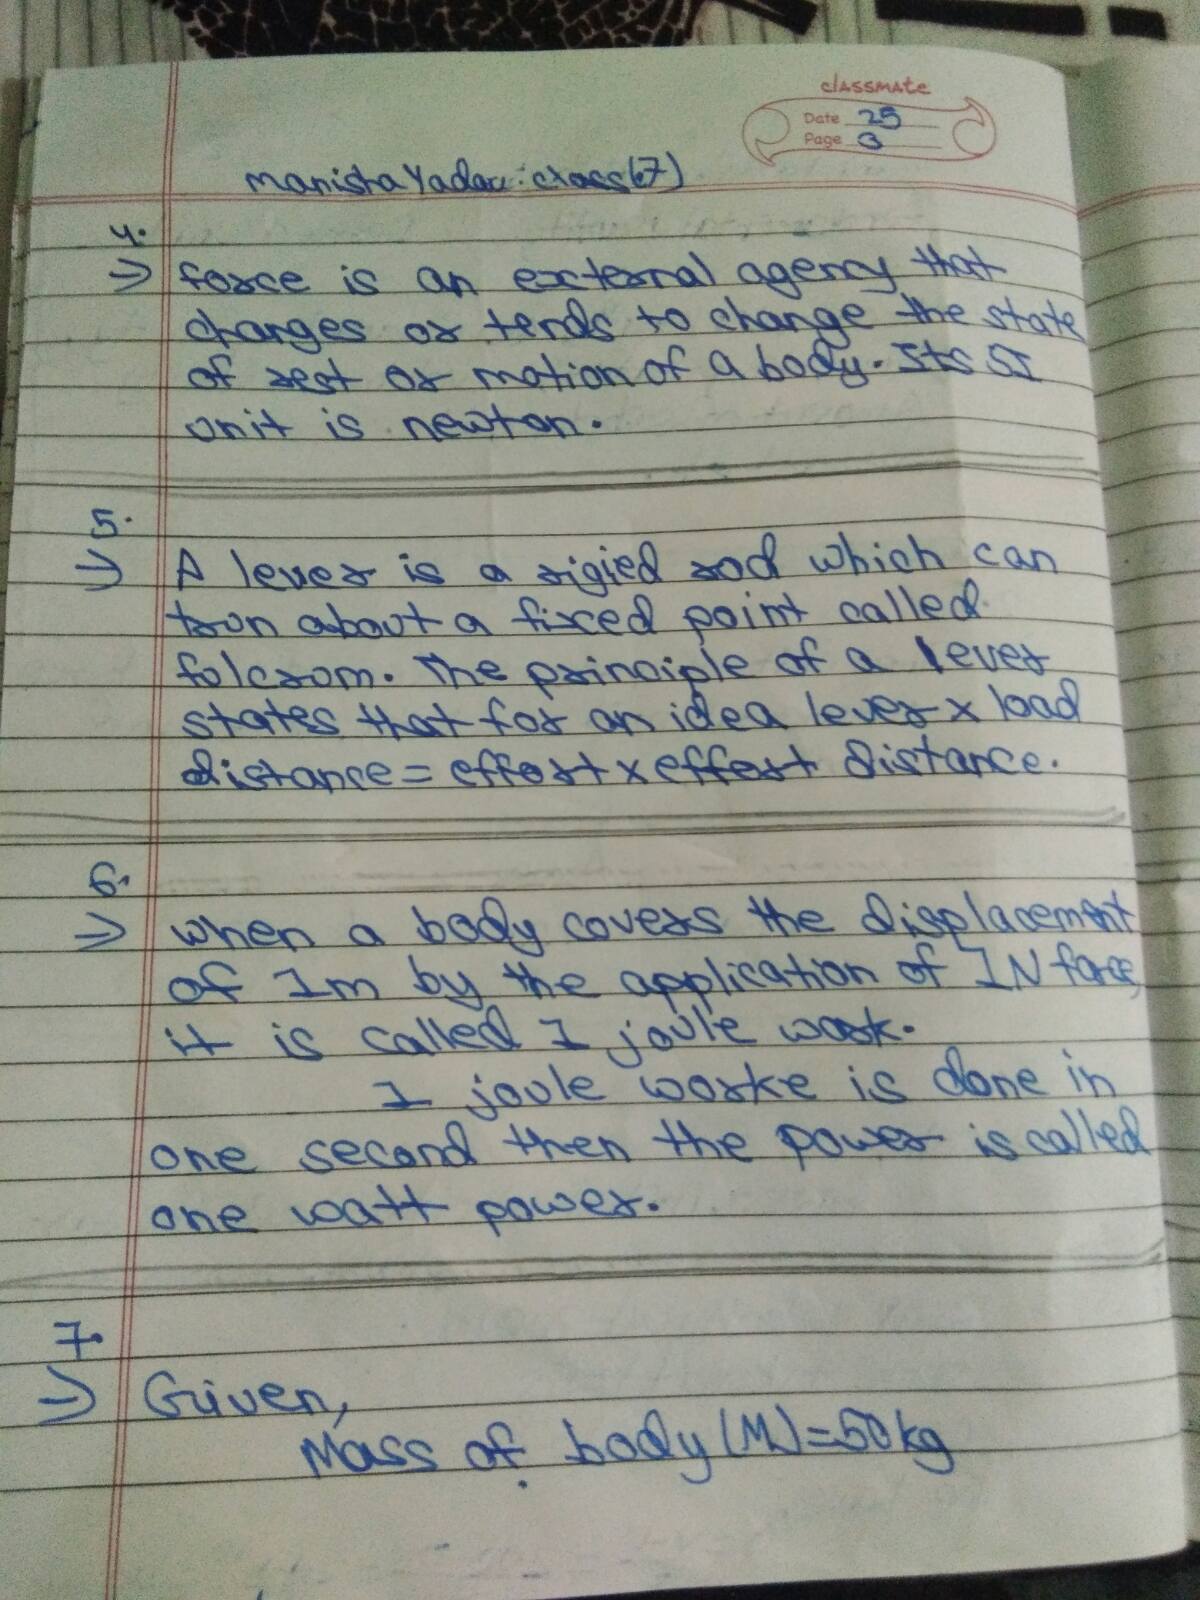 classmate
Date 25
Page 3
Manista Yadav : class (7)
4.
⇒ force is an external agency that
changes or tends to change the state
of rest or motion of a body. Its SI
unit is newton.
5.
⇒ A lever is a rigied rod which can
trun about a fixed point called
folcrom. The principle of a lever
states that for an idea lever x load
distance = effort x effort distance.
6.
⇒ when a body covers the displacement
of 1m by the application of 1N force,
it is called 1 joule work.
1 joule worke is done in
one second then the power is called
one watt power.
7.
⇒ Given,
Mass of body (M) = 50kg